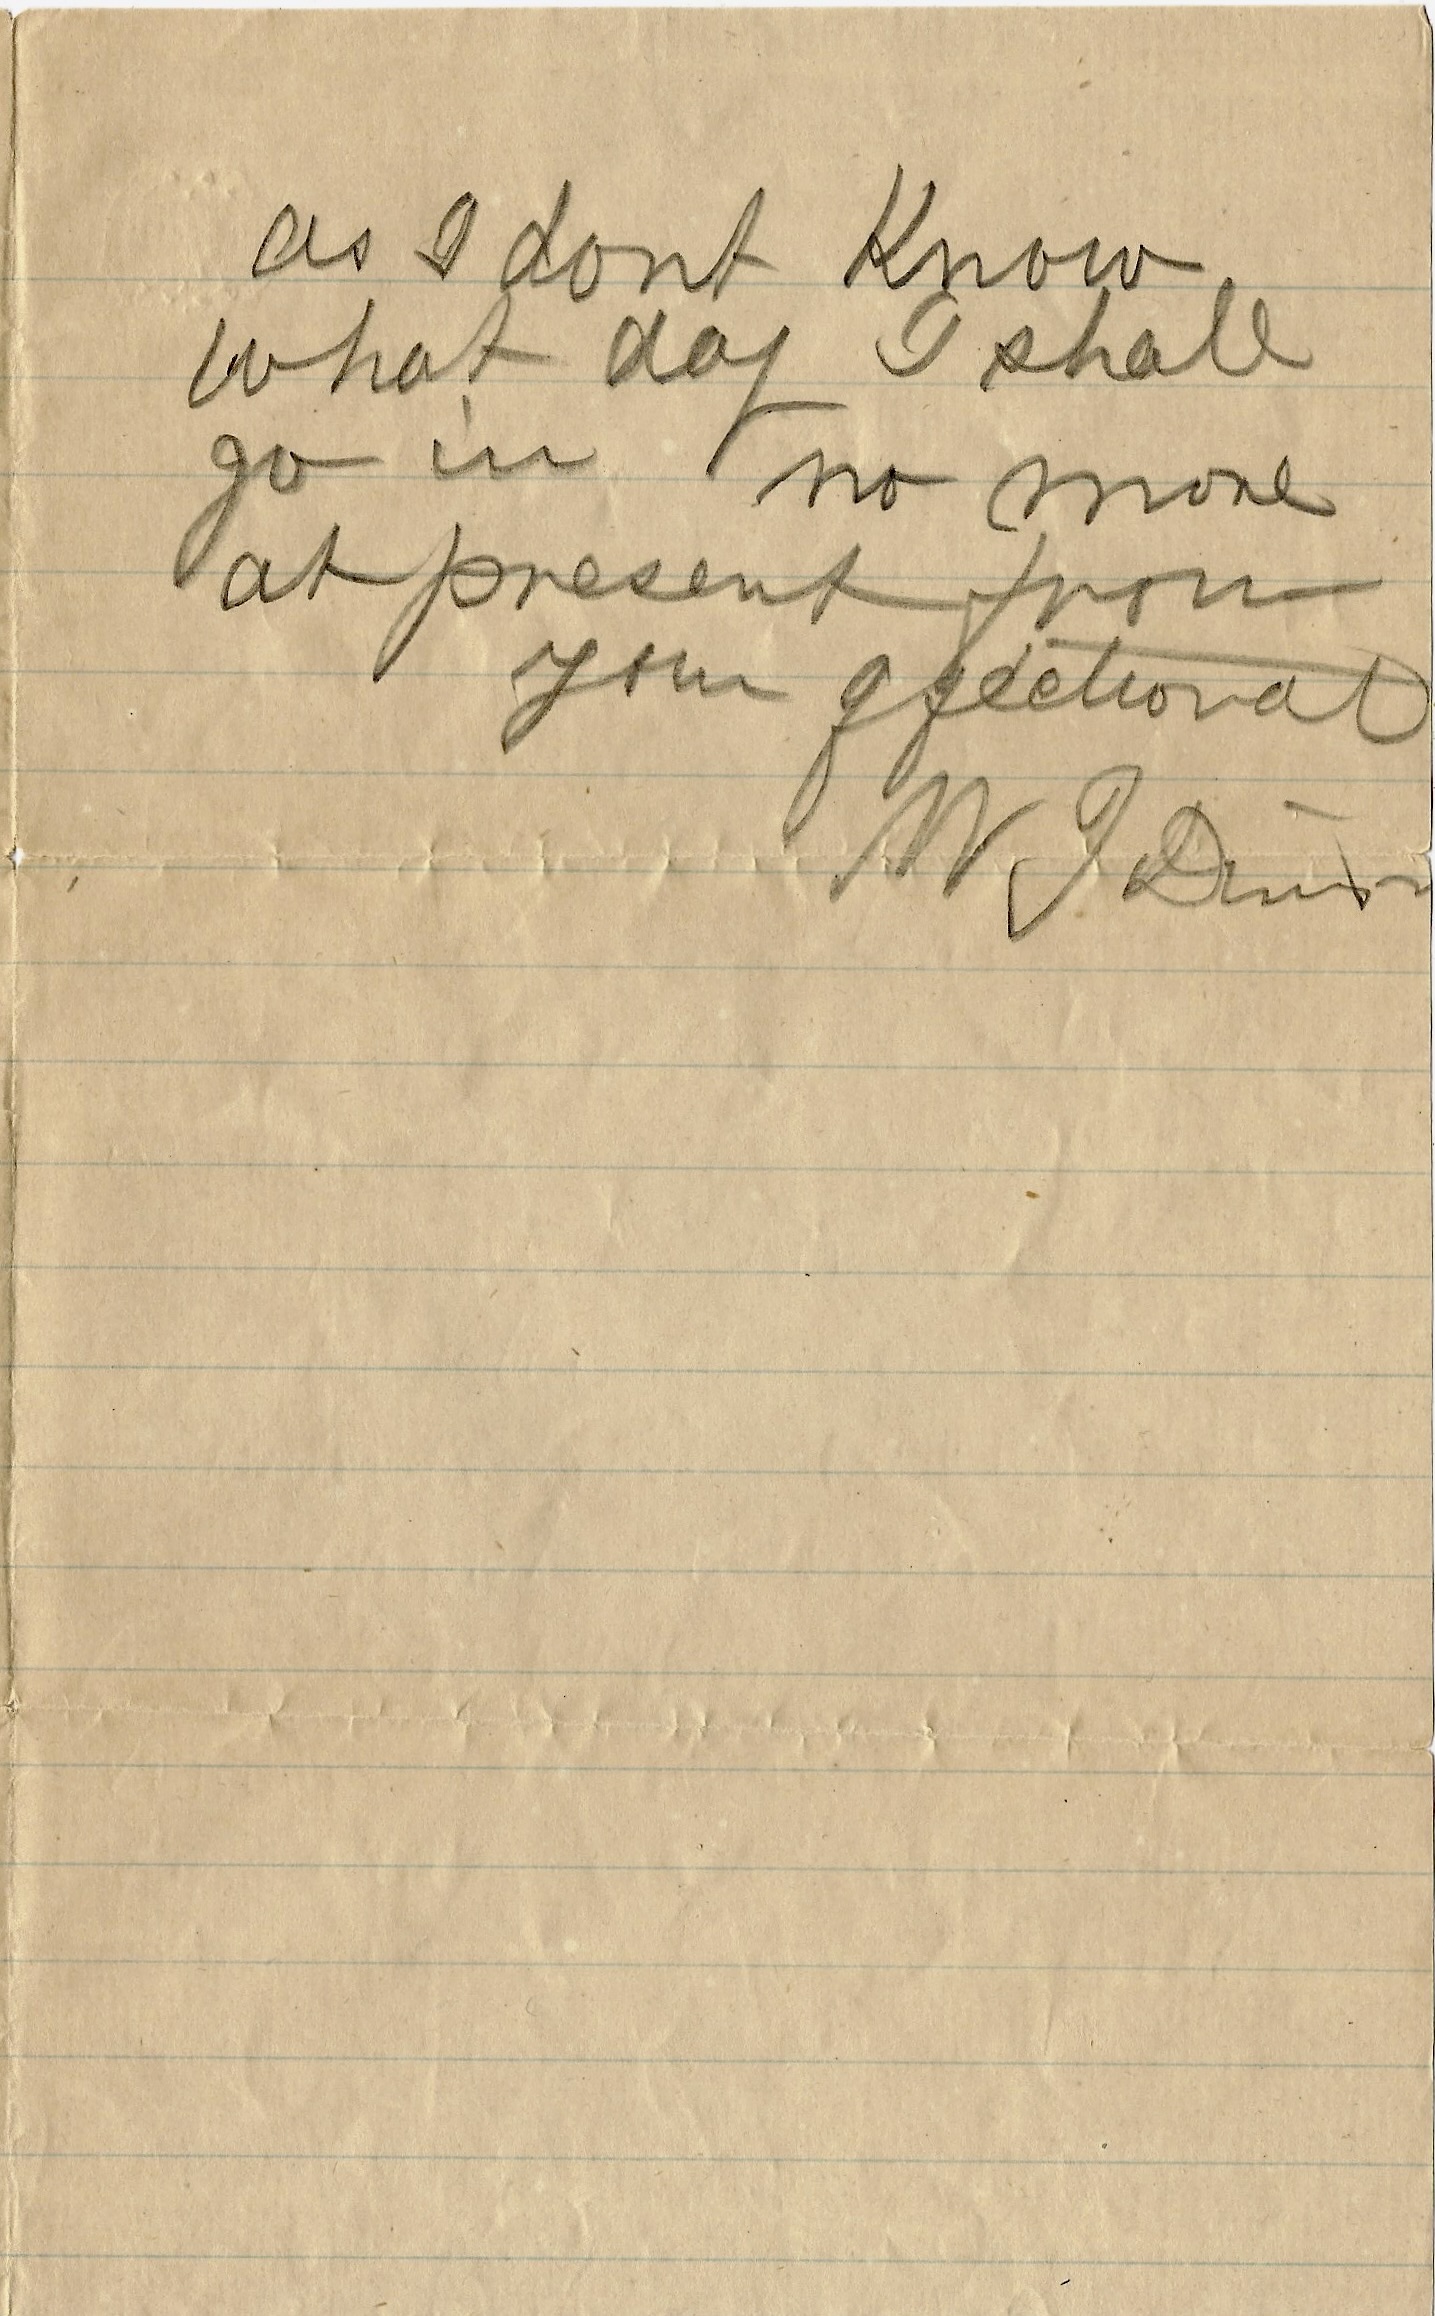 as I dont Know
what day I shall
go in no more
at present from
your affectionat
W J